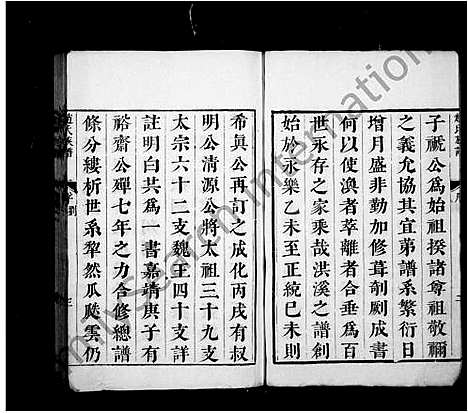 子祇公為始祖揆諸尊祖敬禰
之義允協其宜第譜系繁衍日
增月盛非勤加修葺剞劂成書
何以使渙者萃離者合垂為百
世永存之家乘哉洪溪之譜創
始於永樂乙未至正統己未則
希眞公再訂之成化丙戌有叔
明公清源公將太祖三十九支
太宗六十二支魏王四十支詳
註明白共為一書嘉靖庚子有
裕齋公輝七年之力合修總譜
條分縷析世系犂然瓜瓞雲仍
趙氏族譜